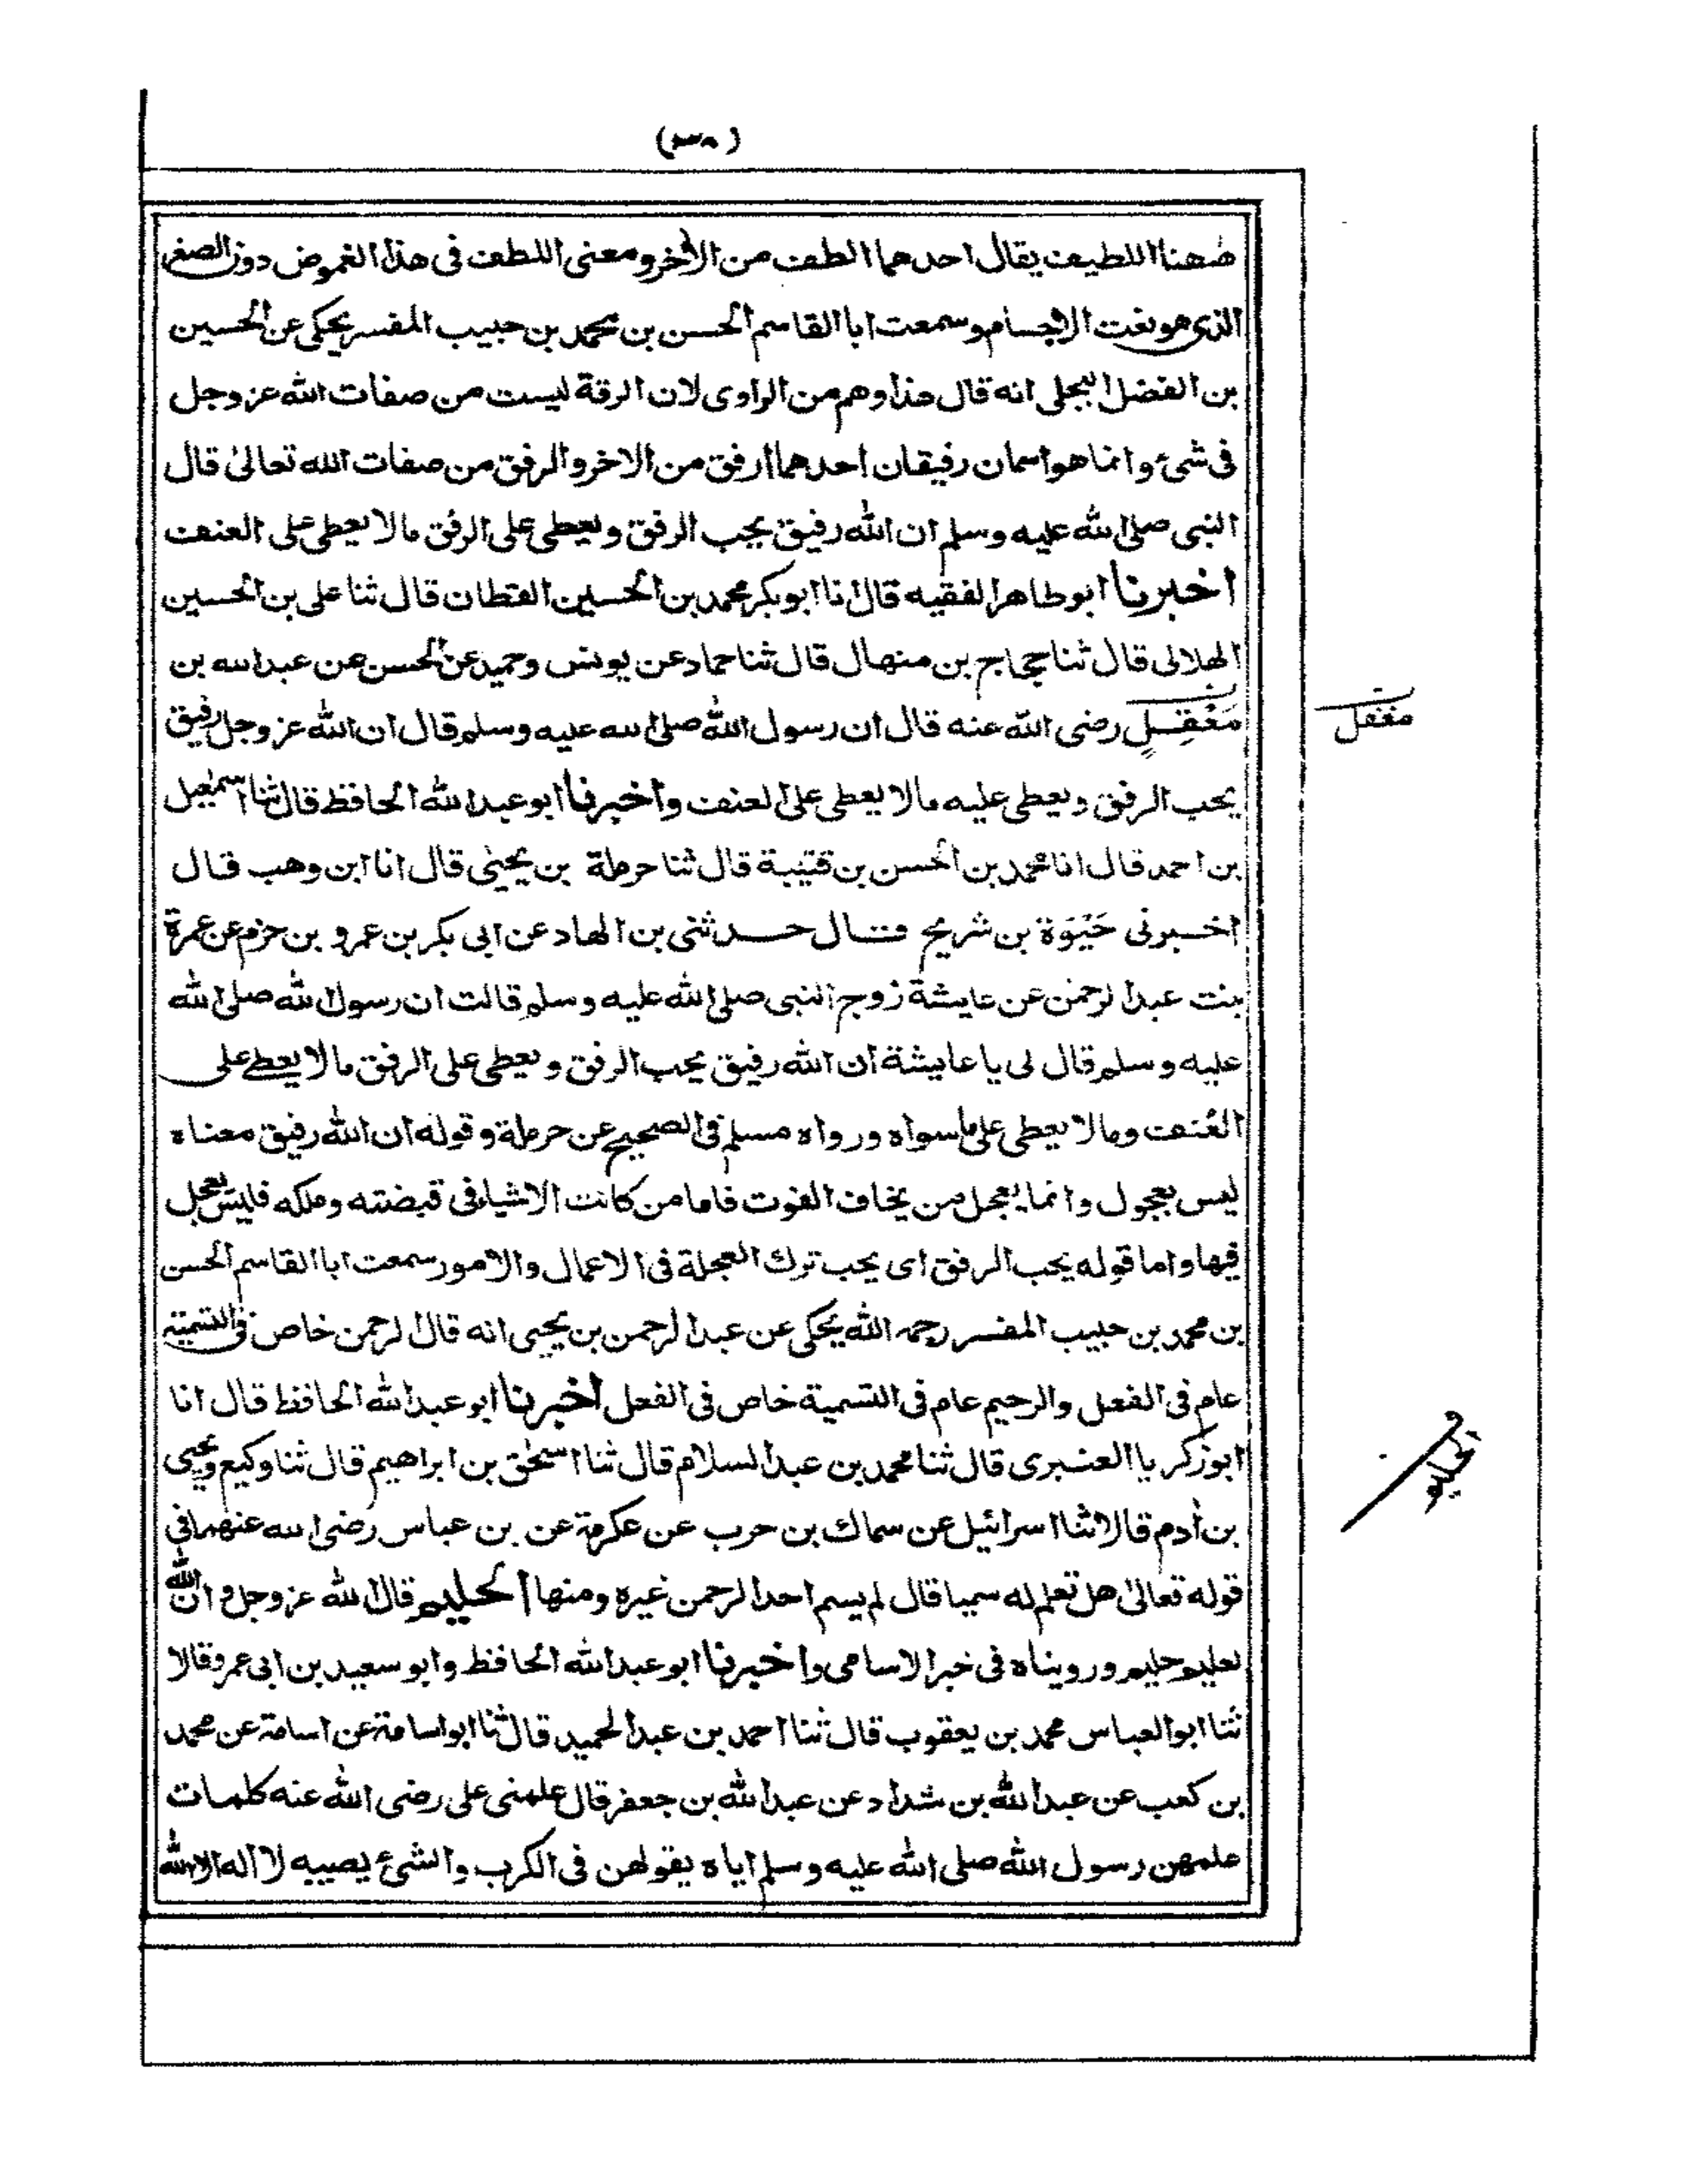 (٣٨)
ههنا اللطيف يقال احدهما الطف من الأخر ومعنى اللطف فى هذا الغموض دون الصغر
الذى هو نعت الاجسام وسمعت ابا القاسم الحسن بن محمد بن حبيب المفسر يحكى عن الحسين
بن الفضل البجلى انه قال هذا وهم من الراوى لان الرقة ليست من صفات الله عز وجل
فى شىء وانما هو اسمان رفيقان احدهما ارفق من الاخر والرفق من صفات الله تعالىٰ قال
النبى صلى الله عليه وسلم ان الله رفيق يحب الرفق ويعطى على الرفق ما لا يعطى على العنف
اخبرنا ابو طاهر الفقيه قال انا ابو بكر محمد بن الحسين القطان قال ثنا على بن الحسين
الهلالى قال ثنا حجاج بن منهال قال ثنا حماد عن يونس وحميد عن الحسن عن عبد الله بن
مَغْقِلٍ رضى الله عنه قال ان رسول الله صلى الله عليه وسلم قال ان الله عز وجل رفيق
مغفل
يحب الرفق ويعطى عليه ما لا يعطى على العنف واخبرنا ابو عبد الله الحافظ قال ثنا اسمٰعيل
بن احمد قال انا محمد بن الحسن بن قتيبة قال ثنا حرملة بن يحيىٰ قال انا ابن وهب قال
اخبرنى حَيْوَة بن شريح قال حدثنى بن الهاد عن ابى بكر بن عمرو بن حزم عن عمرة
بنت عبد الرحمن عن عايشة زوج النبى صلى الله عليه وسلم قالت ان رسول الله صلى الله
عليه وسلم قال لى يا عايشة ان الله رفيق يحب الرفق ويعطى على الرفق ما لا يعطى على
العُنف وما لا يعطى على ما سواه ورواه مسلم فى الصحيح عن حرملة وقوله ان الله رفيق معناه
ليس بعجول وانما يعجل من يخاف الفوت فاما من كانت الاشياء فى قبضته وملكه فليس يعجل
فيها واما قوله يحب الرفق اى يحب ترك العجلة فى الاعمال والامور سمعت ابا القاسم الحسن
بن محمد بن حبيب المفسر رحمه الله يحكى عن عبد الرحمن بن يحيى انه قال الرحمن خاص فى التسمية
عام فى الفعل والرحيم عام فى التسمية خاص فى الفعل اخبرنا ابو عبد الله الحافظ قال انا
ابو زكريا العنبرى قال ثنا محمد بن عبد السلام قال ثنا اسحٰق بن ابراهيم قال ثنا وكيع ويحيى
بن أدم قالا ثنا اسرائيل عن سماك بن حرب عن عكرمة عن بن عباس رضى الله عنهما فى
قوله تعالىٰ هل تعلم له سميا قال لم يسم احد الرحمن غيره ومنها الحليم قال الله عز وجل وان الله
لعليم حليم ورويناه فى خبر الاسامى واخبرنا ابو عبد الله الحافظ وابو سعيد بن ابى عمرو قالا
ثنا ابو العباس محمد بن يعقوب قال ثنا احمد بن عبد الحميد قال ثنا ابو اسامة عن اسامة عن محمد
بن كعب عن عبد الله بن شداد عن عبد الله بن جعفر قال علمنى على رضى الله عنه كلمات
علمهن رسول الله صلى الله عليه وسلم اياه يقولهن فى الكرب والشىء يصيبه لا اله الا الله